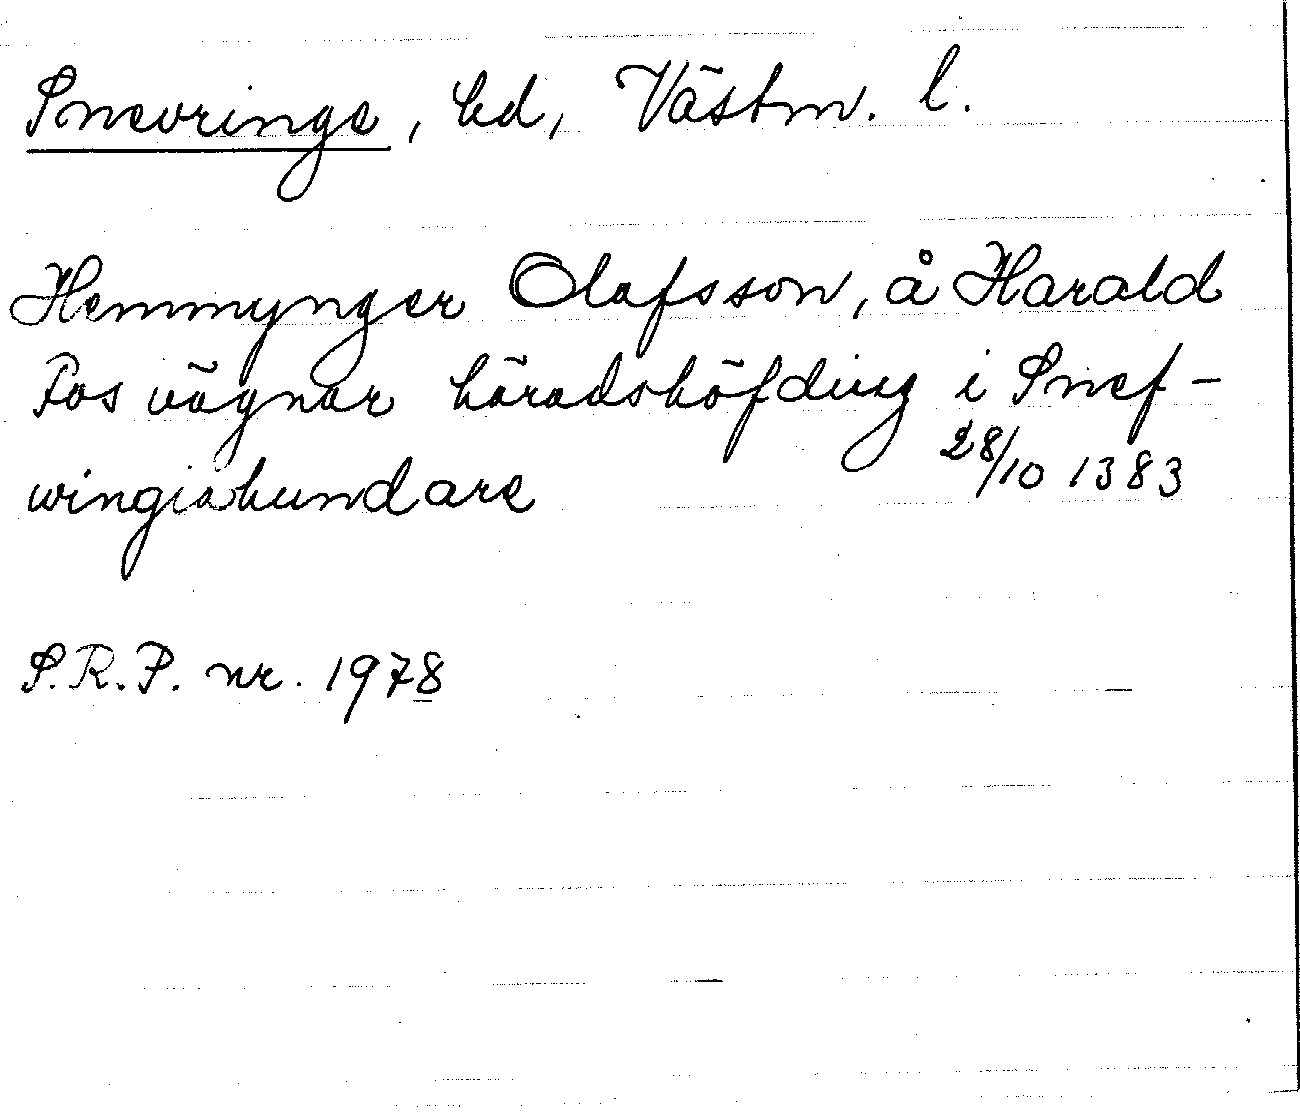 Snevringe, hd, Västm. l.
Hemmynger Olafsson, å Harald
Fos vägnar häradshöfding i Snef-
wingiahundare 28/10 1383
S.R.P. nr. 1978